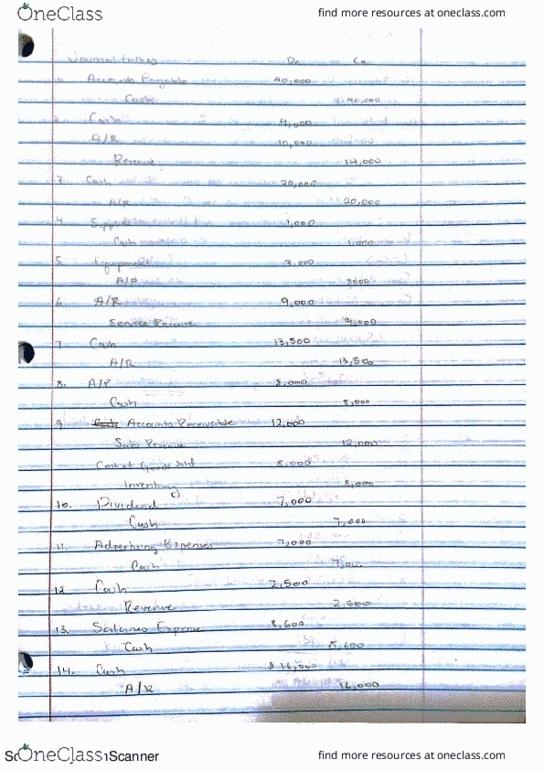 OneClass find more resources at oneclass.com
Journal Entries Dr. Cr.
1. Accounts Payable 40,000
Cash 40,000
2. Cash 4,000
A/R 10,000
Revenue 14,000
3. Cash 20,000
A/R 20,000
4. Supplies 1,000
Cash 1,000
5. Equipment 3,000
A/P 3000
6. A/R 9,000
Service Revenue 9,000
7. Cash 13,500
A/R 13,500
8. A/P 8,000
Cash 8,000
9. Accounts Receivable 12,000
Sales Revenue 12,000
Cost of Goods Sold 8,000
Inventory 8,000
10. Dividend 7,000
Cash 7,000
11. Advertising Expenses 7,000
Cash
12 Cash 2,500
Revenue 2,500
13. Salaries Expense 8,600
Cash 8,600
14. Cash $ 16,000
A/R 16,000
OneClass Scanner find more resources at oneclass.com